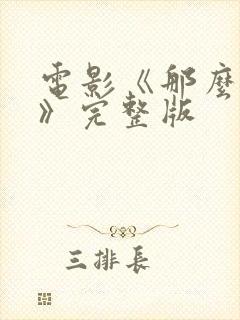 電影《那麼
》完整版
三排長